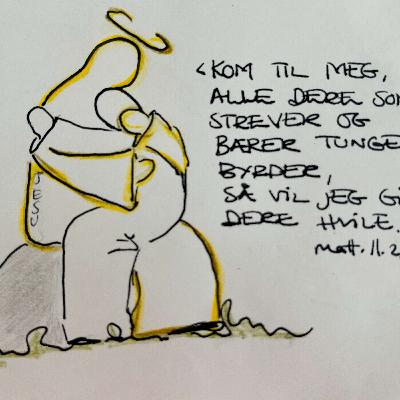 «KOM TIL MEG,
ALLE DERE SOM
STREVER OG
BÆRER TUNGE
BYRDER,
SÅ VIL JEG GI
DERE HVILE.
Matt. 11.2
JESU